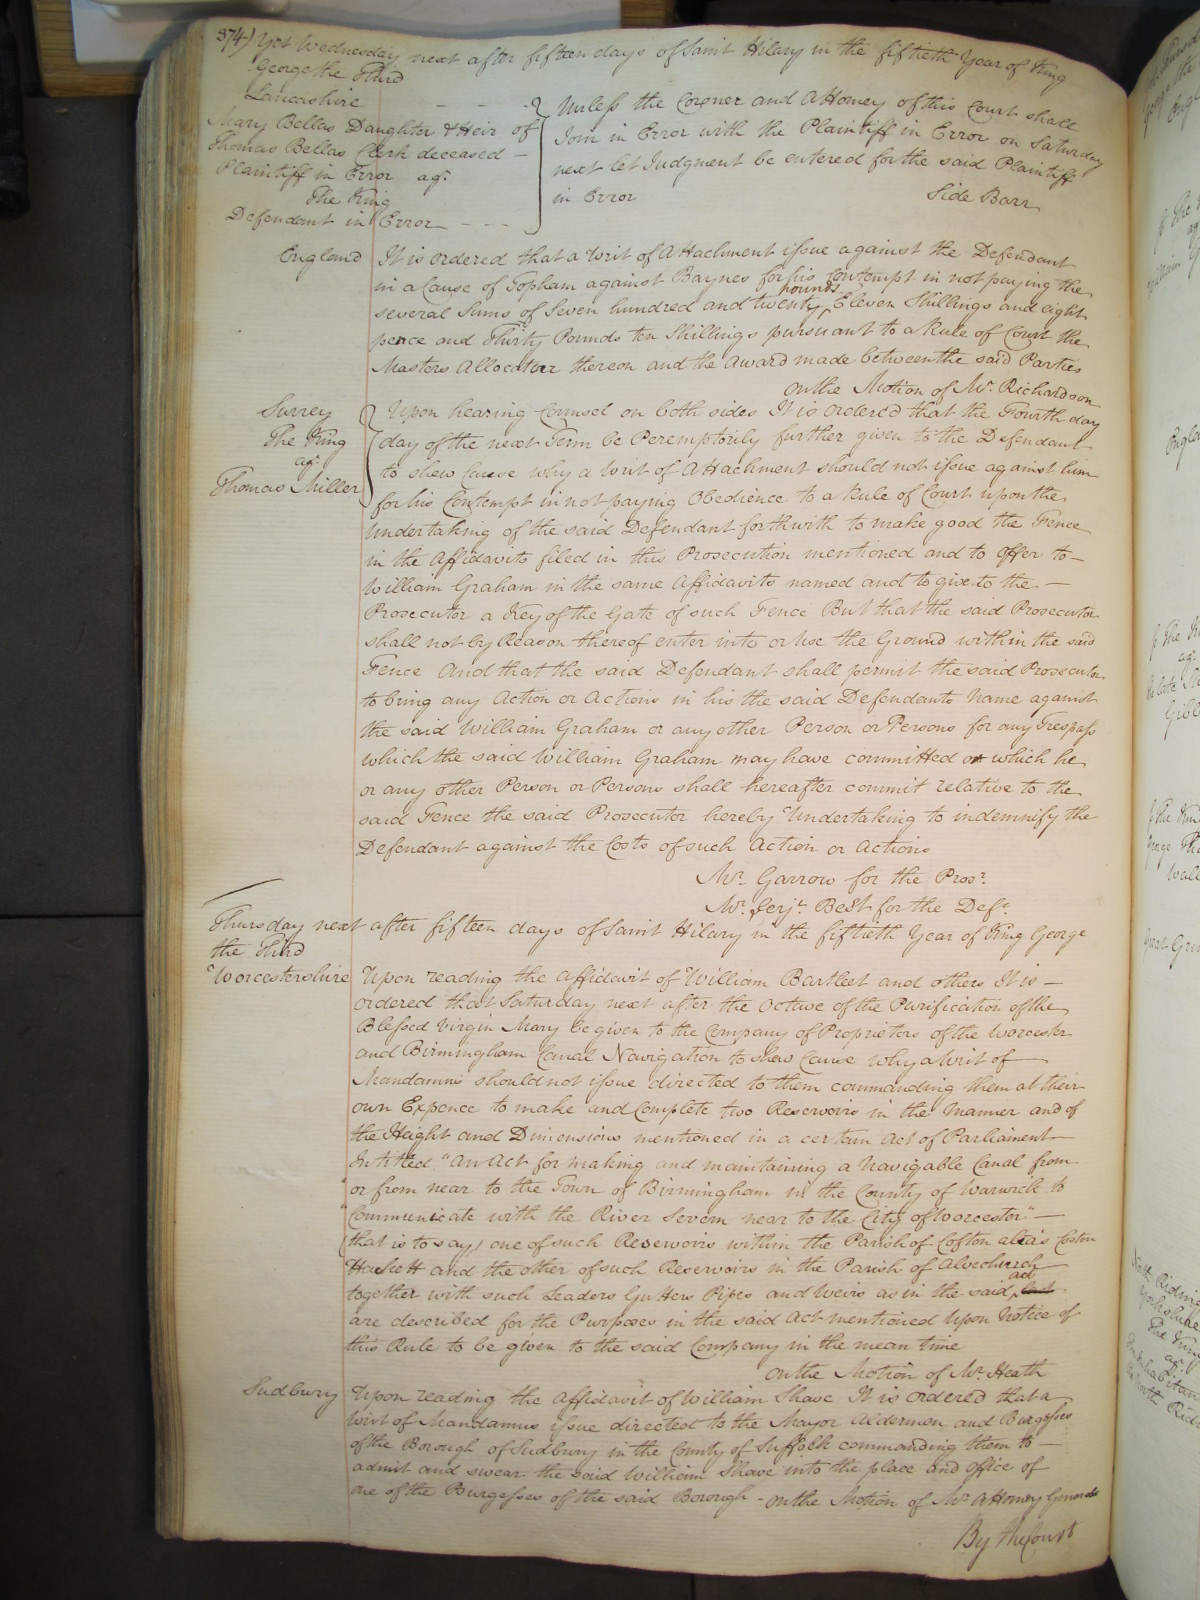 374) Yet Wednesday next after fifteen days of Saint Hilary in the fiftieth Year of King
George the Third
Lancashire - - -
Mary Bellas Daughter & Heir of
Thomas Bellas Clerk deceased -
Plaintiff in Error agt
The King
Defendant in Error - - -
Unless the Coroner and Attorney of this Court shall
Join in Error with the Plaintiff in Error on Saturday
next let Judgment be entered for the said Plaintiff
in Error Side Barr
England It is ordered that a Writ of Attachment issue against the Defendant
in a Cause of Topham against Baynes for his Contempt in not paying the
several Sums of Seven hundred and twenty pounds Eleven Shillings and eight
pence and Thirty Pounds ten Shillings pursuant to a Rule of Court the
Masters Allocatur thereon and the Award made between the said Parties
On the Motion of Mr. Richardson
Surrey
The King
agt
Thomas Miller
Upon hearing Counsel on both sides It is ordered that the Fourth day
day of the next Term be Peremptorily further given to the Defendant
to shew Cause why a Writ of Attachment should not issue against him
for his Contempt in not paying Obedience to a Rule of Court upon the
Undertaking of the said Defendant forthwith to make good the Fence
in the Affidavits filed in this Prosecution mentioned and to offer to -
William Graham in the same Affidavits named and to give to the -
Prosecutor a Key of the Gate of such Fence But that the said Prosecutor
shall not by Reason thereof enter into or Use the Ground within the said
Fence And that the said Defendant shall permit the said Prosecutor
to bring any Action or Actions in his the said Defendants Name against
the said William Graham or any other Person or Persons for any Trespass
which the said William Graham may have committed or which he
or any other Person or Persons shall hereafter commit relative to the
said Fence the said Prosecutor hereby Undertaking to indemnify the
Defendant against the Costs of such Action or Actions
Mr. Garrow for the Prosr.
Mr. Serjt. Best for the Deft.
Thursday next after fifteen days of Saint Hilary in the fiftieth Year of King George
the Third
Worcestershire Upon reading the Affidavit of William Bartleet and others It is -
ordered that Saturday next after the Octave of the Purification of the
Blessed Virgin Mary be given to the Company of Proprietors of the Worcester
and Birmingham Canal Navigation to shew Cause why a Writ of
Mandamus should not issue directed to them commanding them at their
own Expence to make and Complete two Reservoirs in the Manner and of
the Height and Dimensions mentioned in a certain Act of Parliament
Intitled "An Act for making and maintaining a Navigable Canal from
"or from near to the Town of Birmingham in the County of Warwick to
"Communicate with the River Severn near to the City of Worcester" -
(that is to say) one of such Reservoirs within the Parish of Cofton alias Coston
Hackett and the other of such Reservoirs in the Parish of Alvechurch
together with such Leaders Gutters Pipes and Weirs as in the said act
are described for the Purposes in the said Act mentioned Upon Notice of
this Rule to be given to the said Company in the mean time
On the Motion of Mr. Heath
Sudbury Upon reading the Affidavit of William Shave It is ordered that a
Writ of Mandamus issue directed to the Mayor Aldermen and Burgesses
of the Borough of Sudbury in the County of Suffolk commanding them to -
admit and swear the said William Shave into the place and Office of
one of the Burgesses of the said Borough - On the Motion of Mr Attorney General
By the Court